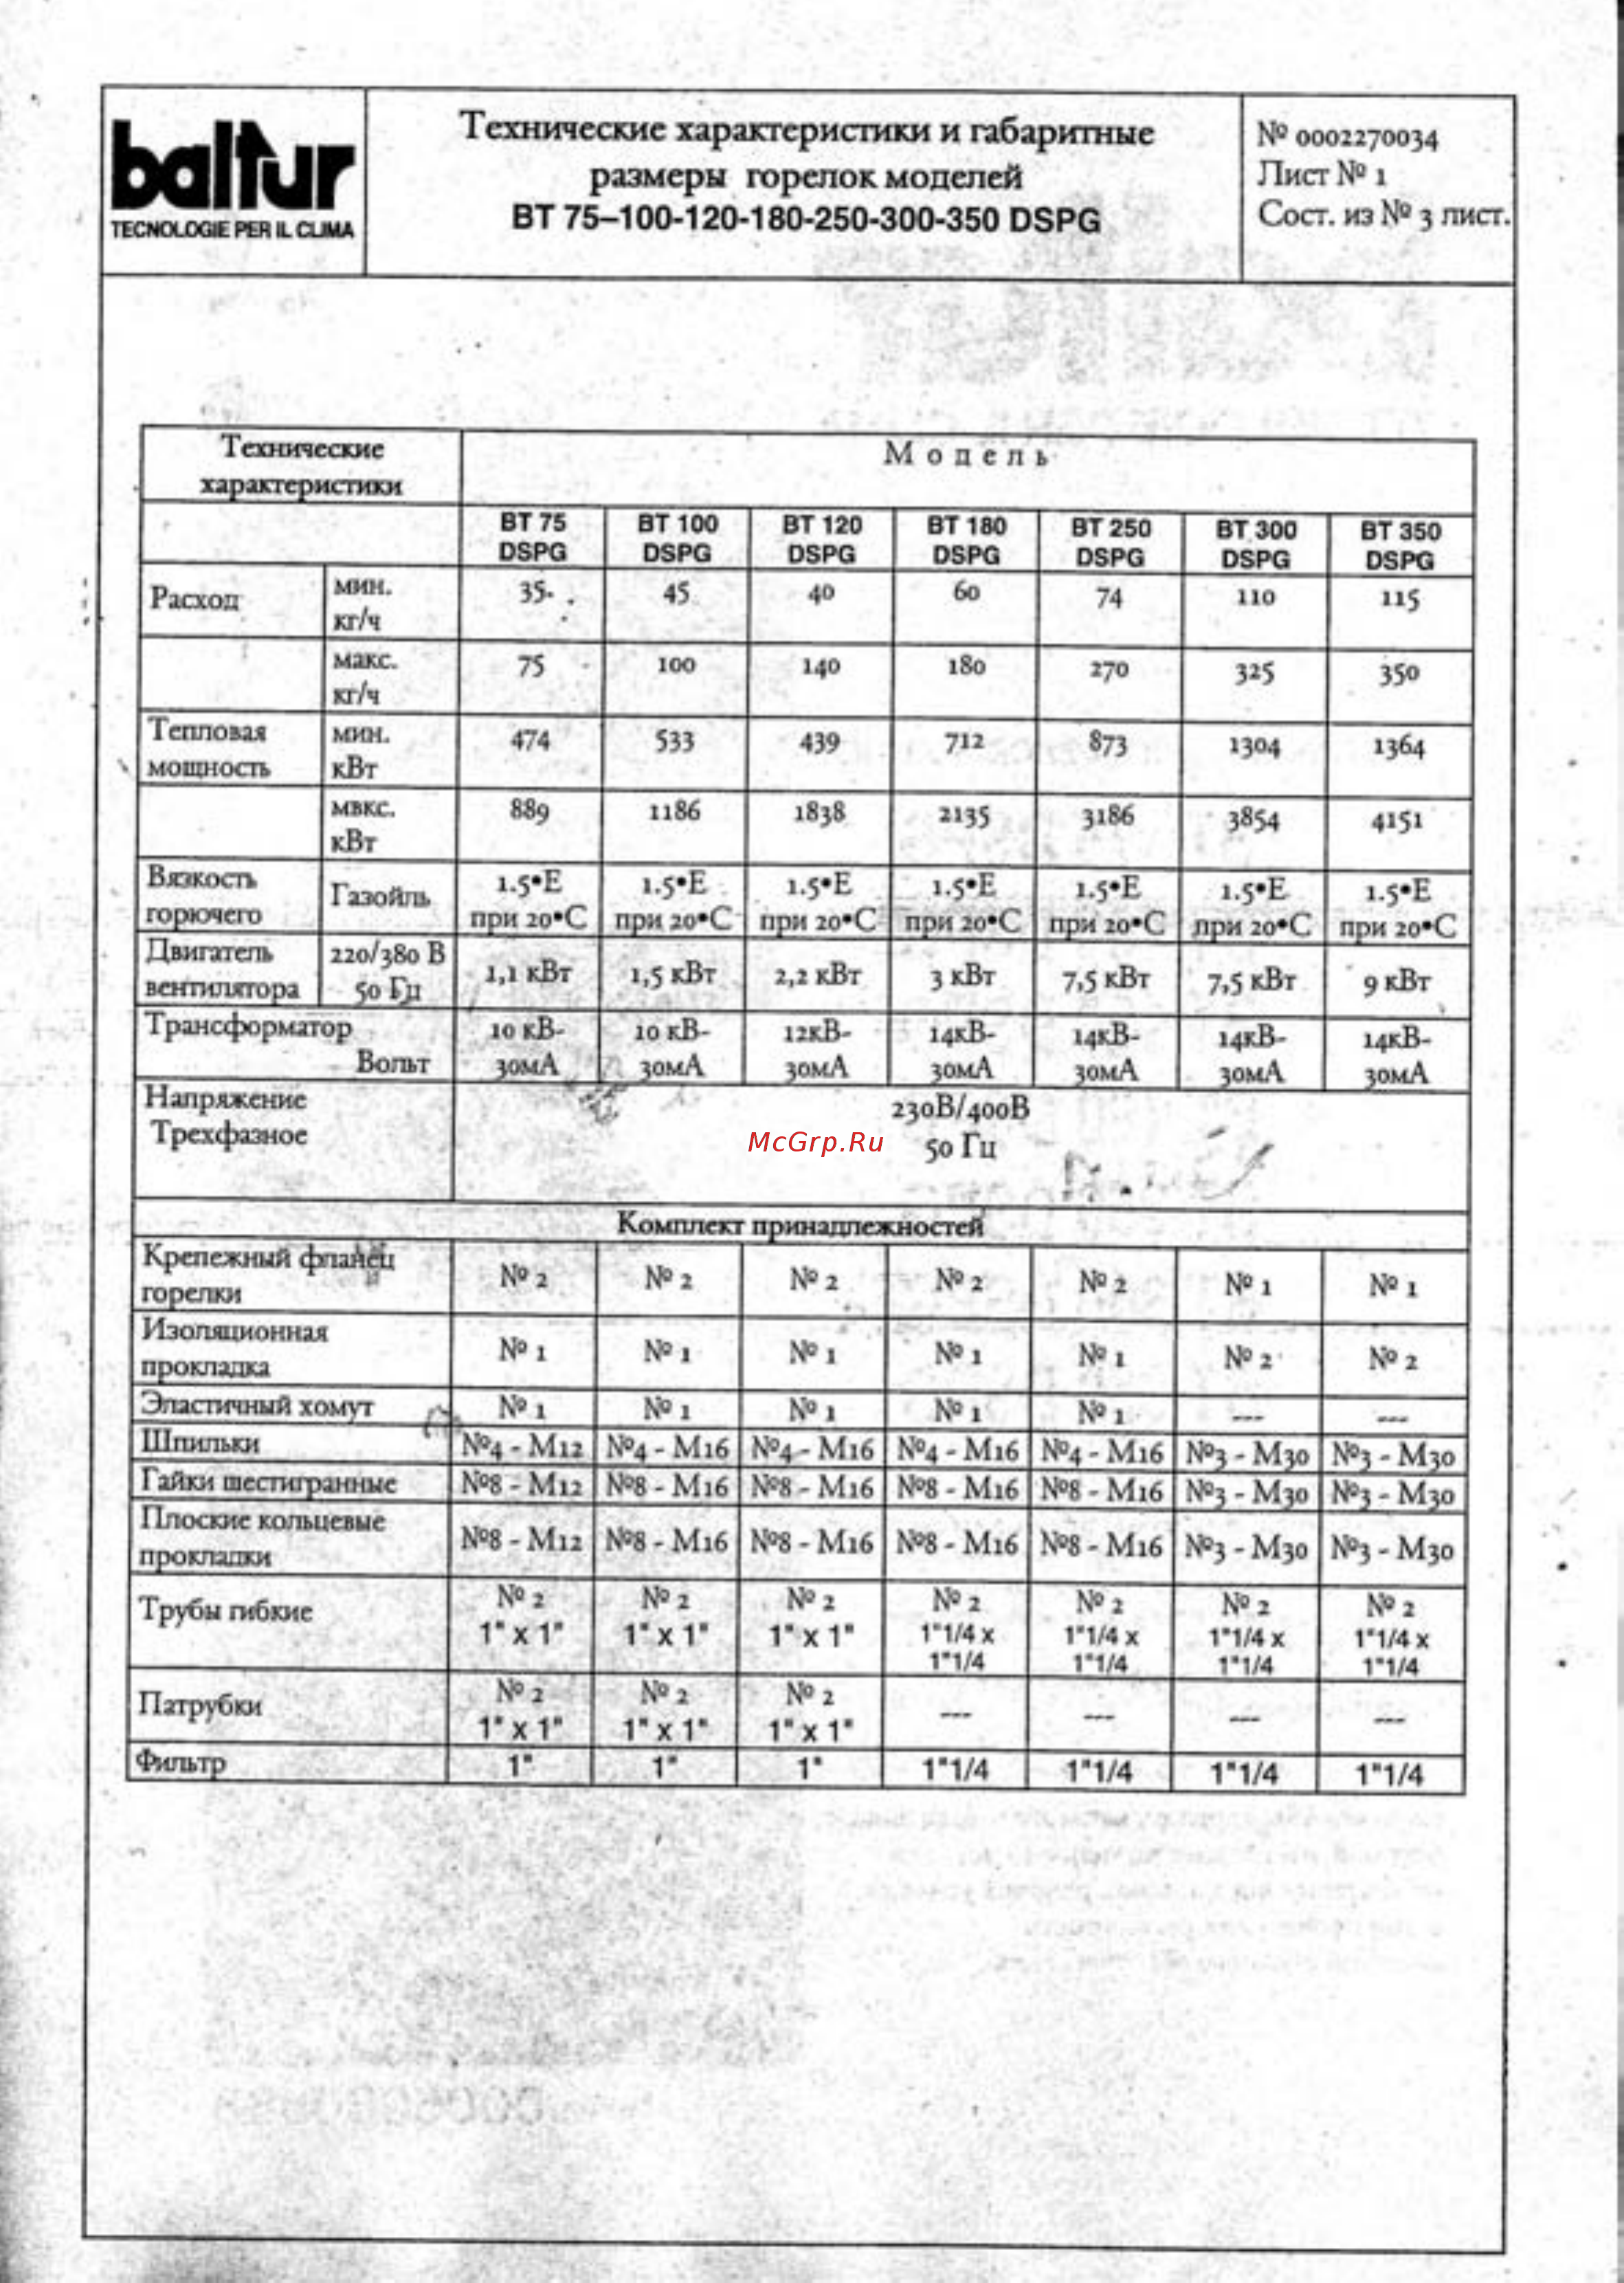 baltur
TECNOLOGIE PER IL CLIMA
Технические характеристики и габаритные
размеры горелок моделей
BT 75–100-120-180-250-300-350 DSPG
№ 0002270034
Лист № 1
Сост. из № 3 лист.
Технические
характеристики
Модель
BT 75 DSPG BT 100 DSPG BT 120 DSPG BT 180 DSPG BT 250 DSPG BT 300 DSPG BT 350 DSPG
Расход мин. кг/ч 35 45 40 60 74 110 115
макс. кг/ч 75 100 140 180 270 325 350
Тепловая мощность мин. кВт 474 533 439 712 873 1304 1364
мвкс. кВт 889 1186 1838 2135 3186 3854 4151
Вязкость горючего Газойль 1.5•E при 20•C 1.5•E при 20•C 1.5•E при 20•C 1.5•E при 20•C 1.5•E при 20•C 1.5•E при 20•C 1.5•E при 20•C
Двигатель вентилятора 220/380 В 50 Гц 1,1 кВт 1,5 кВт 2,2 кВт 3 кВт 7,5 кВт 7,5 кВт 9 кВт
Трансформатор Вольт 10 кВ-30мА 10 кВ-30мА 12кВ-30мА 14кВ-30мА 14кВ-30мА 14кВ-30мА 14кВ-30мА
Напряжение
Трехфазное
230В/400В
50 Гц
McGrp.Ru
Комплект принадлежностей
Крепежный фланец горелки № 2 № 2 № 2 № 2 № 2 № 1 № 1
Изоляционная прокладка № 1 № 1 № 1 № 1 № 1 № 2 № 2
Эластичный хомут № 1 № 1 № 1 № 1 № 1 --- ---
Шпильки №4 - М12 №4 - М16 №4 - М16 №4 - М16 №4 - М16 №3 - М30 №3 - М30
Гайки шестигранные №8 - М12 №8 - М16 №8 - М16 №8 - М16 №8 - М16 №3 - М30 №3 - М30
Плоские кольцевые прокладки №8 - М12 №8 - М16 №8 - М16 №8 - М16 №8 - М16 №3 - М30 №3 - М30
Трубы гибкие № 2 1" x 1" № 2 1" x 1" № 2 1" x 1" № 2 1"1/4 x 1"1/4 № 2 1"1/4 x 1"1/4 № 2 1"1/4 x 1"1/4 № 2 1"1/4 x 1"1/4
Патрубки № 2 1" x 1" № 2 1" x 1" № 2 1" x 1" --- --- --- ---
Фильтр 1" 1" 1" 1"1/4 1"1/4 1"1/4 1"1/4